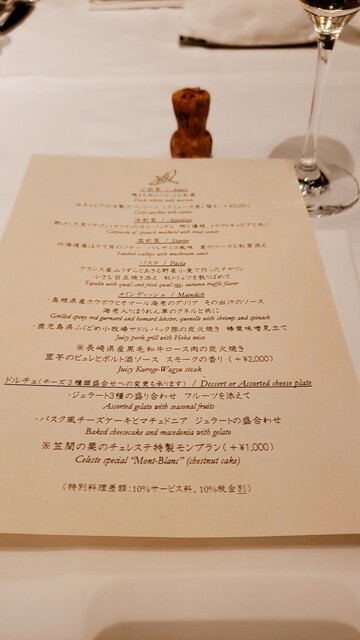 小前菜 / Amuse
冷前菜 / Appetizer
温前菜 / Starter
Sautéed scallops, with mushroom sauce
パスタ / Pasta
フランス産山うずらとあさる野産小麦で作ったタヤリン
小さな目玉焼き添え 秋トリュフを散りばめて
Tajarin with quail and fried quail egg, autumn truffle flavor
メインディッシュ / Maindish
・島根県産ホウボウとオマール海老のグリリア その出汁のソース
海老入りほうれん草のクネルと共に
Grilled spiny red gurnard and homard lobster, quenelle with shrimp and spinach
・鹿児島県ふくどめ小牧場サドルバック豚の炭火焼き 椿葉味噌見立て
Juicy pork grill with Hoba miso
※長崎県産黒毛和牛ロース肉の炭火焼き
里芋のピュレとポルト酒ソース スモークの香り(+¥2,000)
Juicy Kuroge-Wagyu steak
ドルチェ(チーズ3種盛合せへの変更も承ります) / Dessert or Assorted cheese plate
・ジェラート3種の盛り合わせ フルーツを添えて
Assorted gelato with seasonal fruits
・バスク風チーズケーキとマチェドニア ジェラートの盛合わせ
Baked cheesecake and macedonia with gelato
※笠間の栗のチェレステ特製モンブラン(+¥1,000)
Celeste special "Mont-Blanc" (chestnut cake)
(特別料理差額:10%サービス料、10%税金別)